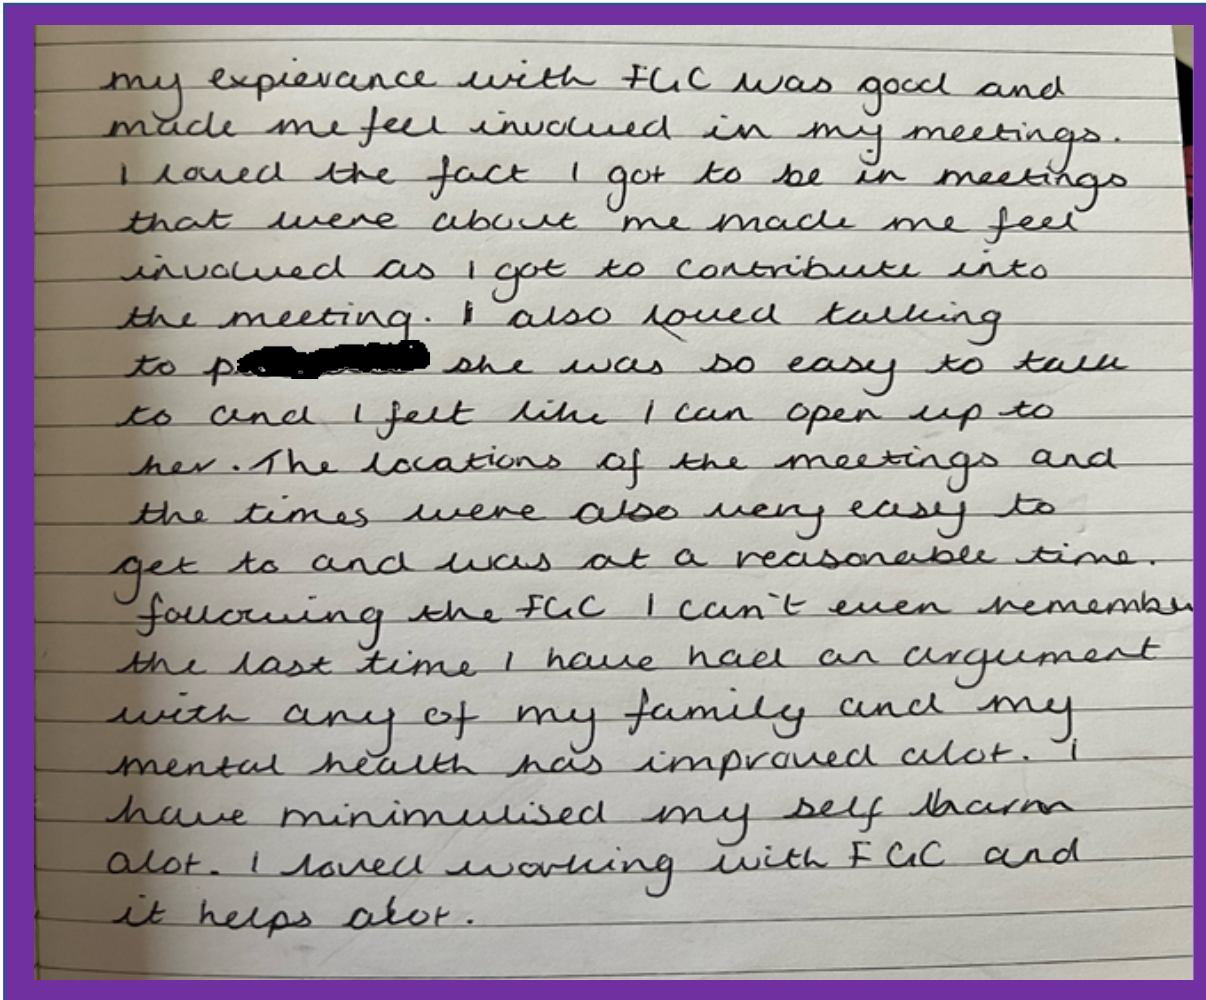 my expievance with FGC was good and
made me feel involved in my meetings.
I loved the fact I got to be in meetings
that were about me made me feel
involved as I got to contribute into
the meeting. I also loved talking
to p she was so easy to talk
to and I felt like I can open up to
her. The locations of the meetings and
the times were also very easy to
get to and was at a reasonable time.
following the FGC I can't even remember
the last time I have had an argument
with any of my family and my
mental health has improved alot. i
have minimulised my self harm
alot. I loved working with FGC and
it helps alot.